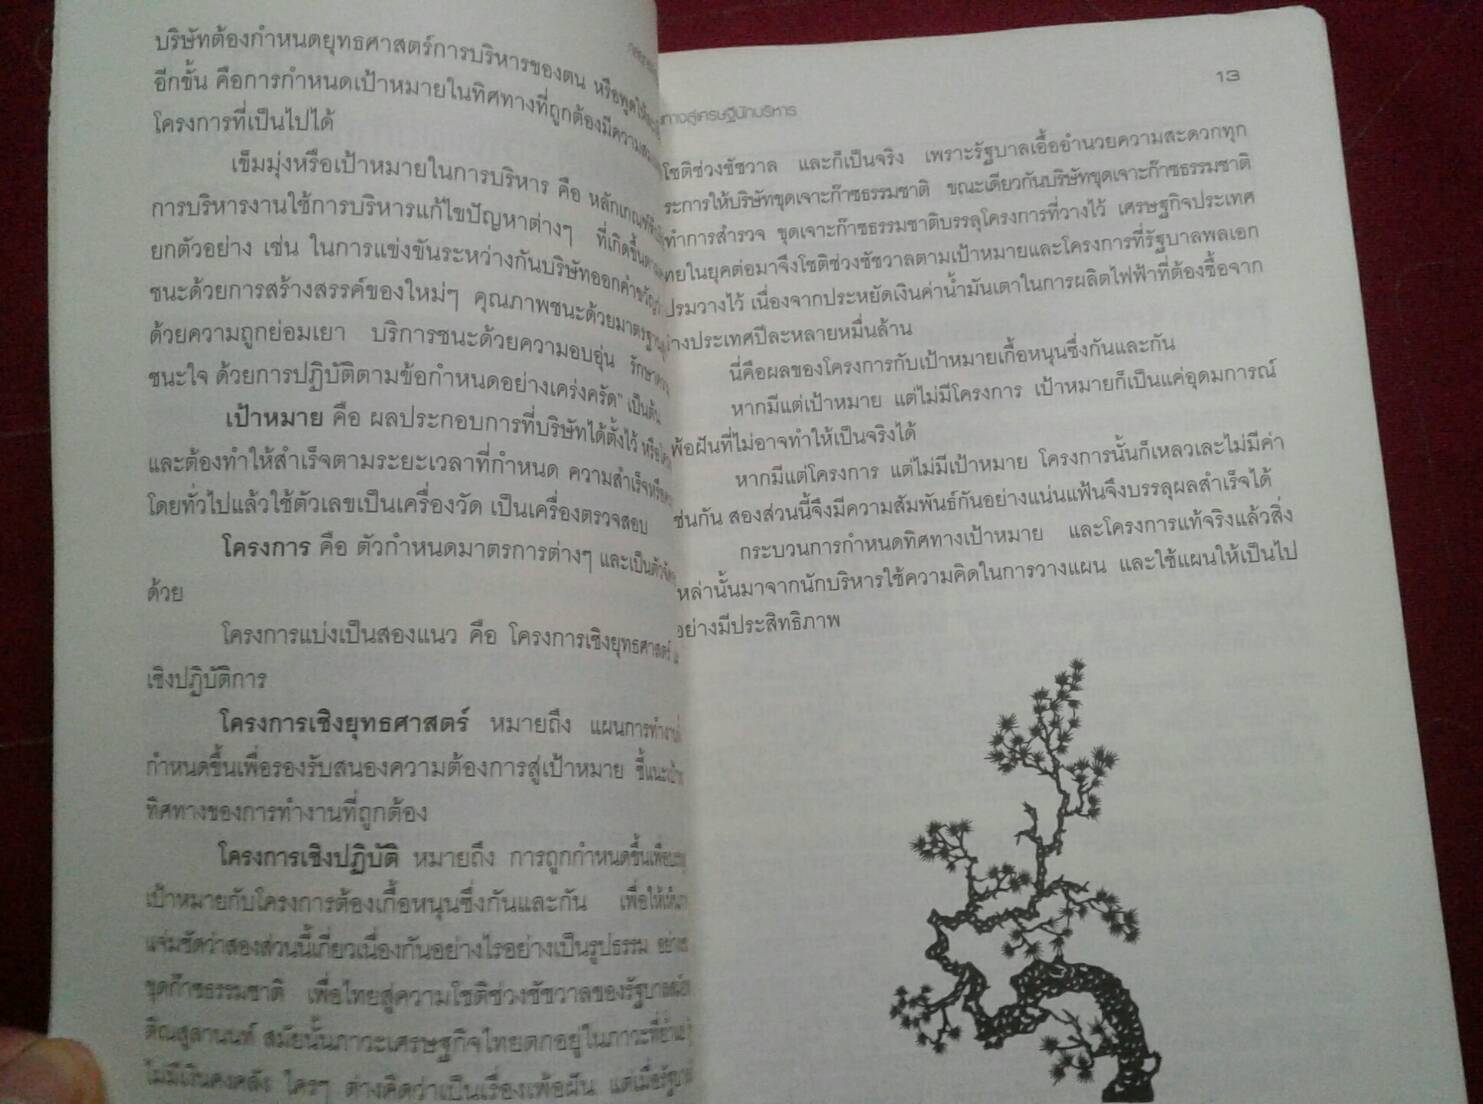 บริษัทต้องกำหนดยุทธศาสตร์การบริหารของตน หรือพูดให้
อีกขั้น คือการกำหนดเป้าหมายในทิศทางที่ถูกต้องมีความ
โครงการที่เป็นไปได้
เข็มมุ่งหรือเป้าหมายในการบริหาร คือ หลักเกณฑ์
การบริหารงานใช้การบริหารแก้ไขปัญหาต่างๆ ที่เกิดขึ้น
ยกตัวอย่าง เช่น ในการแข่งขันระหว่างกันบริษัทออกคำขวัญว่า
ชนะด้วยการสร้างสรรค์ของใหม่ๆ คุณภาพชนะด้วยมาตรฐาน
ด้วยความถูกย่อมเยา บริการชนะด้วยความอบอุ่น รักษา
ชนะใจ ด้วยการปฏิบัติตามข้อกำหนดอย่างเคร่งครัด" เป็นต้น
เป้าหมาย คือ ผลประกอบการที่บริษัทได้ตั้งไว้ หรือ
และต้องทำให้สำเร็จตามระยะเวลาที่กำหนด ความสำเร็จ
โดยทั่วไปแล้วใช้ตัวเลขเป็นเครื่องวัด เป็นเครื่องตรวจสอบ
โครงการ คือ ตัวกำหนดมาตรการต่างๆ และเป็นตัว
ด้วย
โครงการแบ่งเป็นสองแนว คือ โครงการเชิงยุทธศาสตร์
เชิงปฏิบัติการ
โครงการเชิงยุทธศาสตร์ หมายถึง แผนการทำงาน
กำหนดขึ้นเพื่อรองรับสนองความต้องการสู่เป้าหมาย ชี้แนะ
ทิศทางของการทำงานที่ถูกต้อง
โครงการเชิงปฏิบัติ หมายถึง การถูกกำหนดขึ้นเพื่อ
เป้าหมายกับโครงการต้องเกื้อหนุนซึ่งกันและกัน เพื่อให้เห็น
แจ่มชัดว่าสองส่วนนี้เกี่ยวเนื่องกันอย่างไรอย่างเป็นรูปธรรม
ขุดก๊าซธรรมชาติ เพื่อไทยสู่ความโชติช่วงชัชวาลของรัฐบาล
ติณสูลานนท์ สมัยนั้นภาวะเศรษฐกิจไทยตกอยู่ในภาวะที่
ไม่มีเงินคงคลัง ใครๆ ต่างคิดว่าเป็นเรื่องเพ้อฝัน แต่เมื่อ
13
ทางสู่เศรษฐีนักบริหาร
โชติช่วงชัชวาล และก็เป็นจริง เพราะรัฐบาลเอื้ออำนวยความสะดวกทุก
ระการให้บริษัทขุดเจาะก๊าซธรรมชาติ ขณะเดียวกันบริษัทขุดเจาะก๊าซธรรมชาติ
ทำการสำรวจ ขุดเจาะก๊าซธรรมชาติบรรลุโครงการที่วางไว้ เศรษฐกิจประเทศ
ทยในยุคต่อมาจึงโชติช่วงชัชวาลตามเป้าหมายและโครงการที่รัฐบาลพลเอก
ปรมวางไว้ เนื่องจากประหยัดเงินค่าน้ำมันเตาในการผลิตไฟฟ้าที่ต้องซื้อจาก
่างประเทศปีละหลายหมื่นล้าน
นี่คือผลของโครงการกับเป้าหมายเกื้อหนุนซึ่งกันและกัน
หากมีแต่เป้าหมาย แต่ไม่มีโครงการ เป้าหมายก็เป็นแค่อุดมการณ์
พ้อฝันที่ไม่อาจทำให้เป็นจริงได้
หากมีแต่โครงการ แต่ไม่มีเป้าหมาย โครงการนั้นก็เหลวเละไม่มีค่า
ช่นกัน สองส่วนนี้จึงมีความสัมพันธ์กันอย่างแน่นแฟ้นจึงบรรลุผลสำเร็จได้
กระบวนการกำหนดทิศทางเป้าหมาย และโครงการแท้จริงแล้วสิ่ง
หล่านั้นมาจากนักบริหารใช้ความคิดในการวางแผน และใช้แผนให้เป็นไป
อย่างมีประสิทธิภาพ